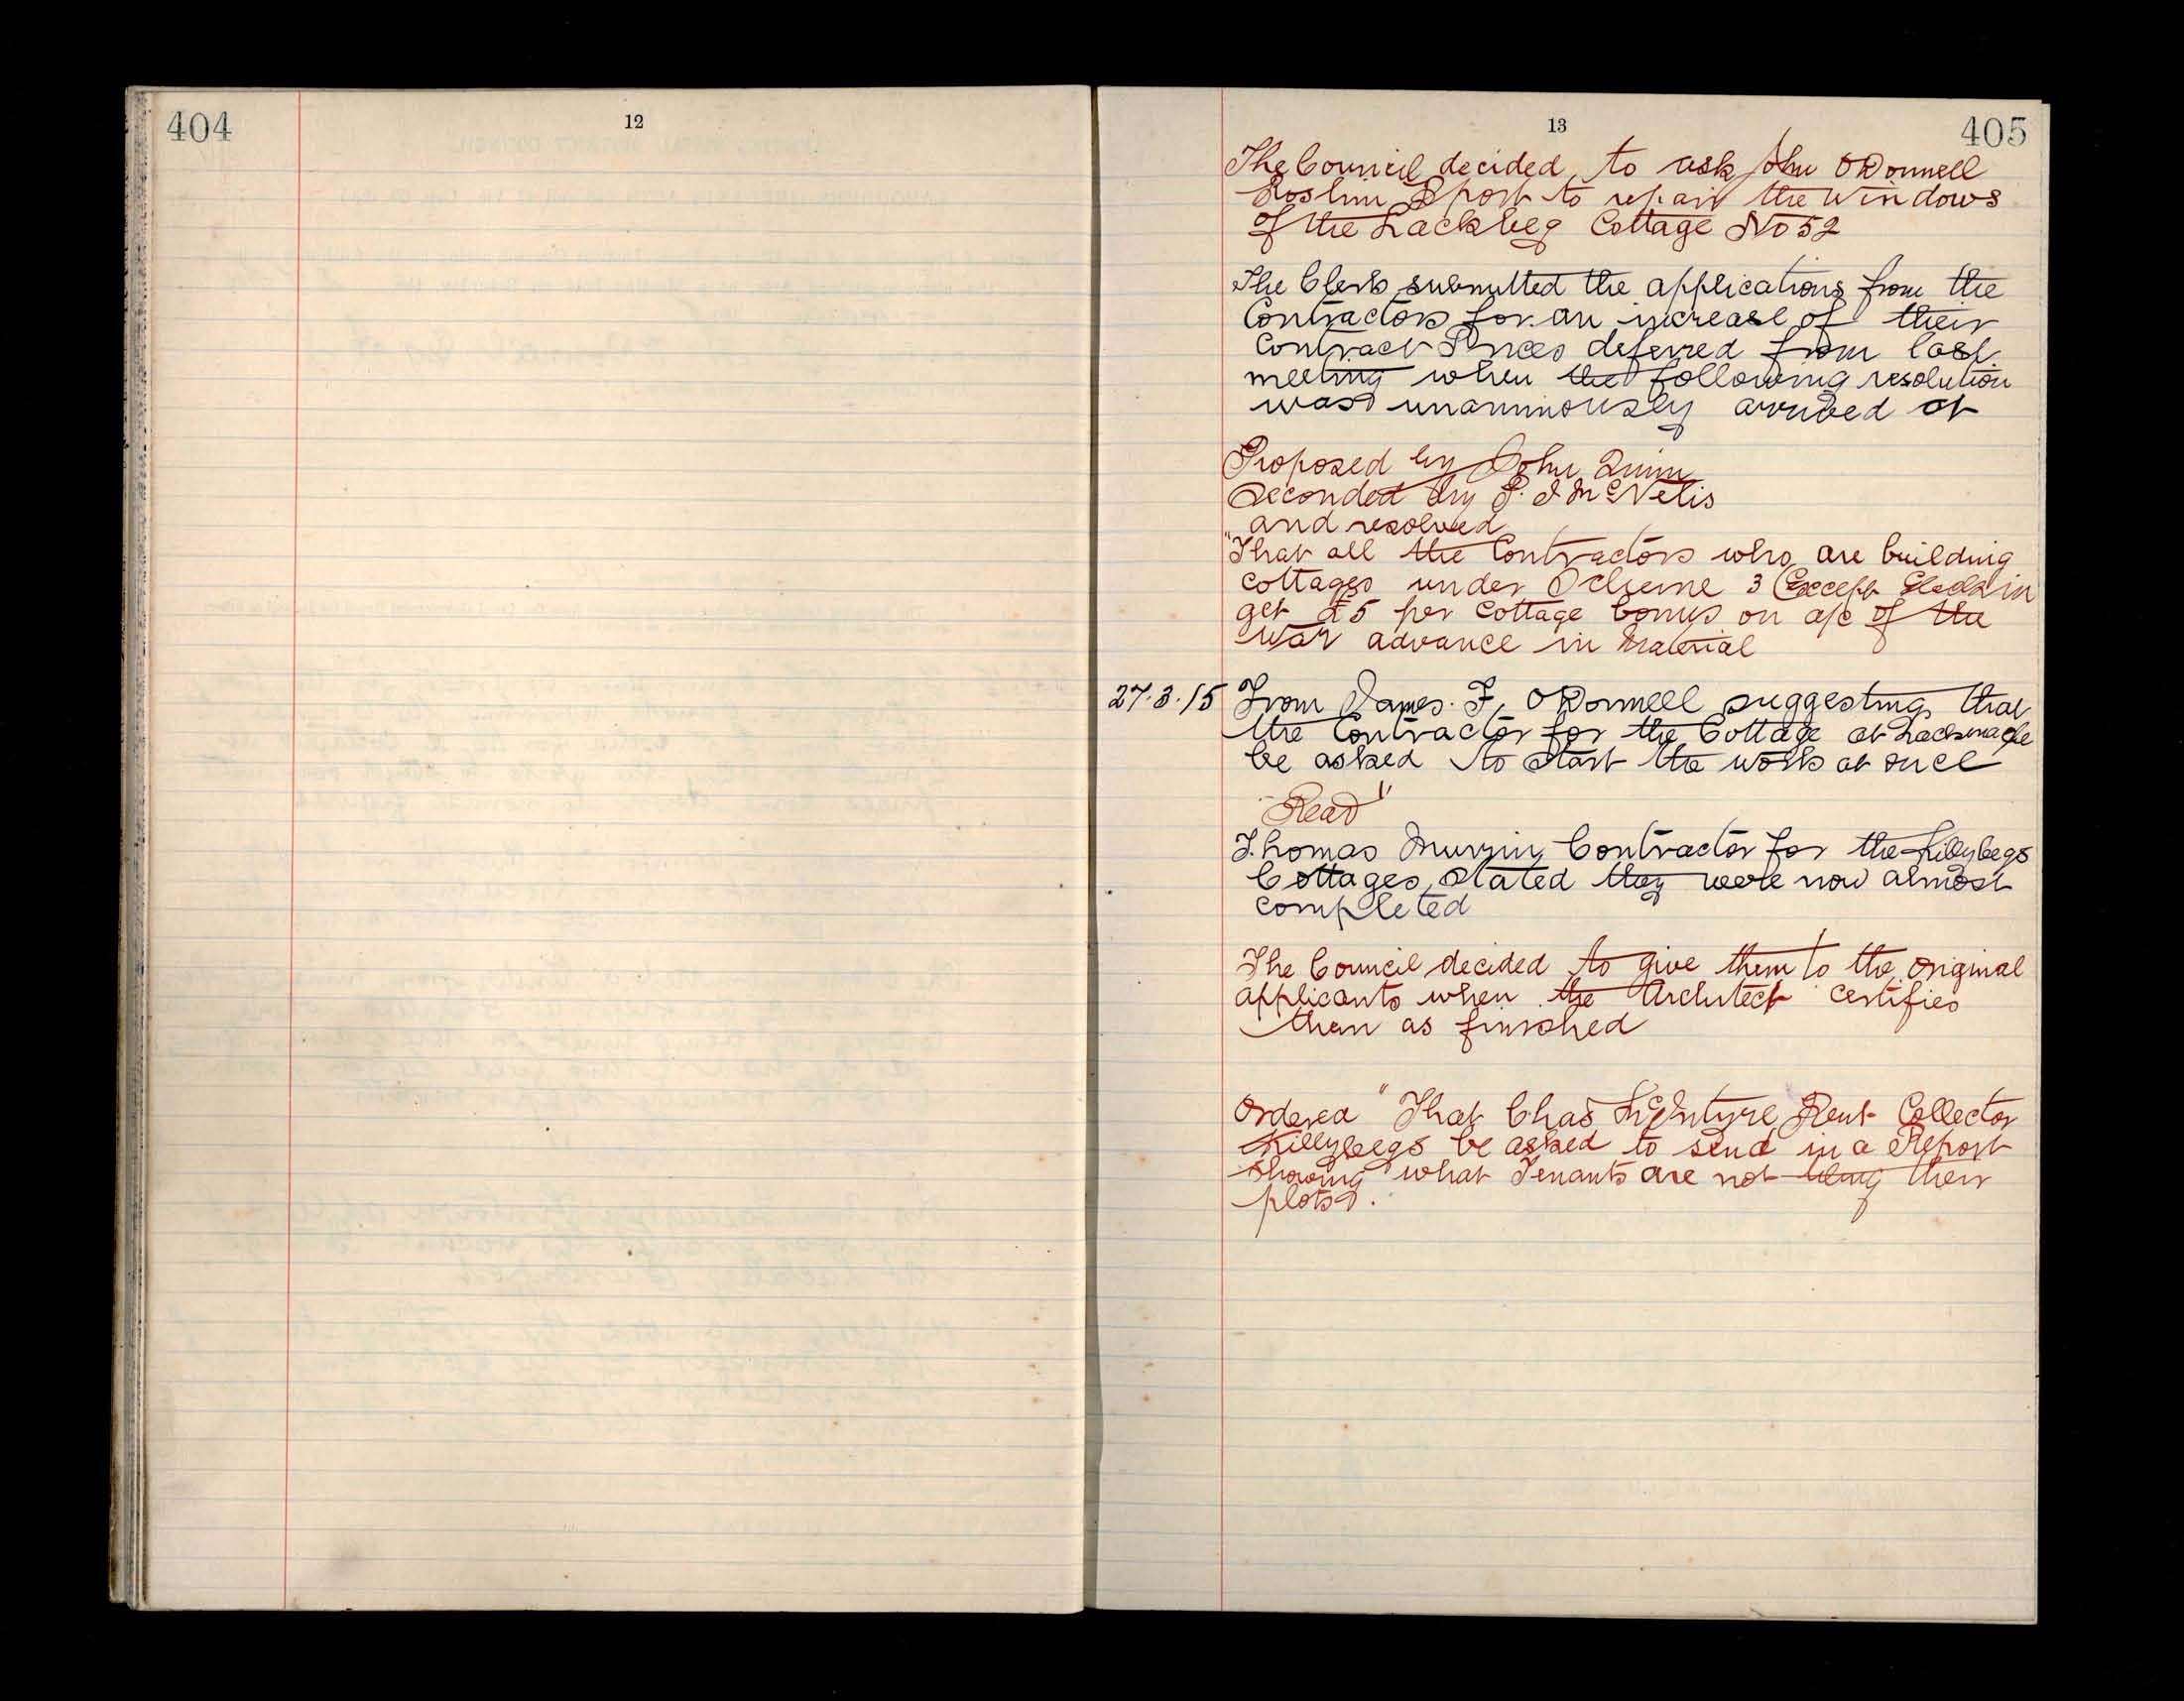 404
12
13
405
The Council decided to ask John O'Donnell
Roshin Dport to repair the windows
of the Lackbeg Cottage No 52
The Clerk submitted the applications from the
Contractors for an increase of their
Contract Prices deferred from last
meeting when the following resolution
was unanimously arrived at
Proposed by John Quinn
Seconded by P. J McNelis
and resolved
"That all the Contractors who are building
cottages under Scheme 3 (Except
get £5 per Cottage bonus on a/c of the
War advance in Material
27.3.15 From James. F. O'Donnell suggesting that
the Contractor for the Cottage at
be asked to start the work at once
"Read"
Thomas Contractor for the Killybegs
Cottages stated they were now almost
completed
The Council decided to give them to the original
applicants when the Architect certifies
them as finished
Ordered "That Chas McIntyre Rent Collector
Killybegs be asked to send in a Report
showing what Tenants are not their
plots.